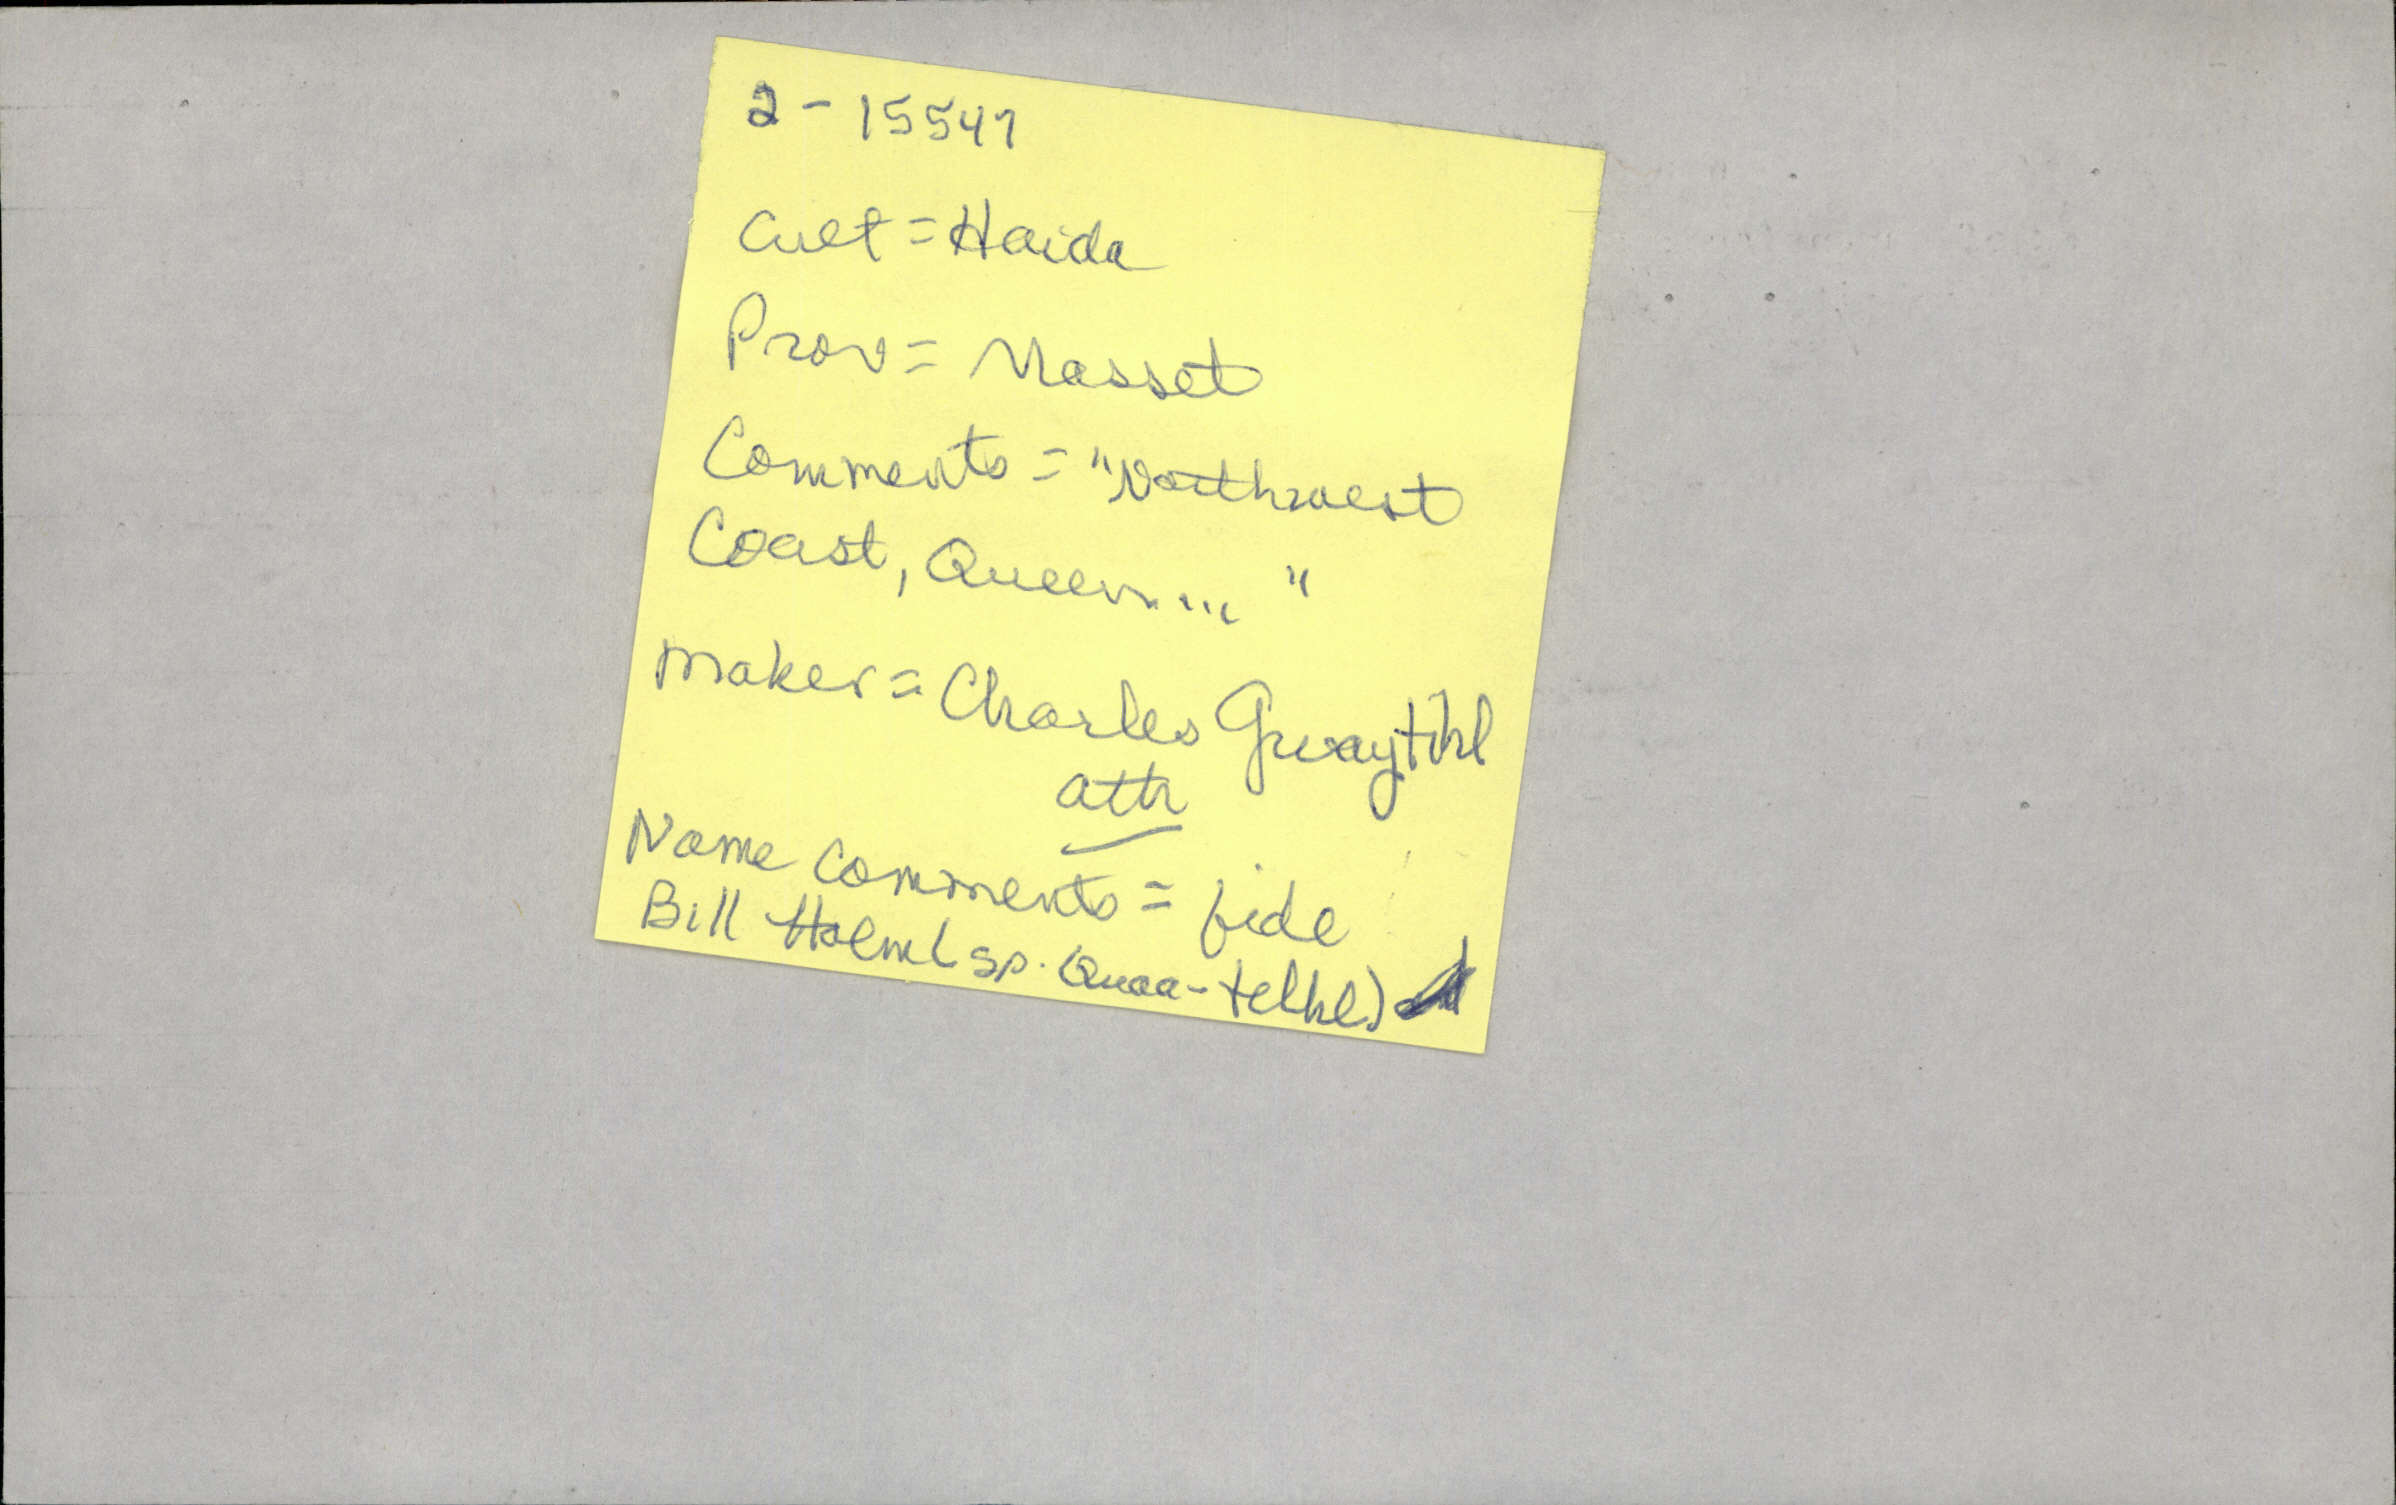 2-15547
Cult = Haida
Prov = Masset
Comments = "Northwest
Coast, Queen... "
Maker = Charles Gwaytihl
attr
Name Comments = fide
Bill Holm (sp. Quaa-telhl)